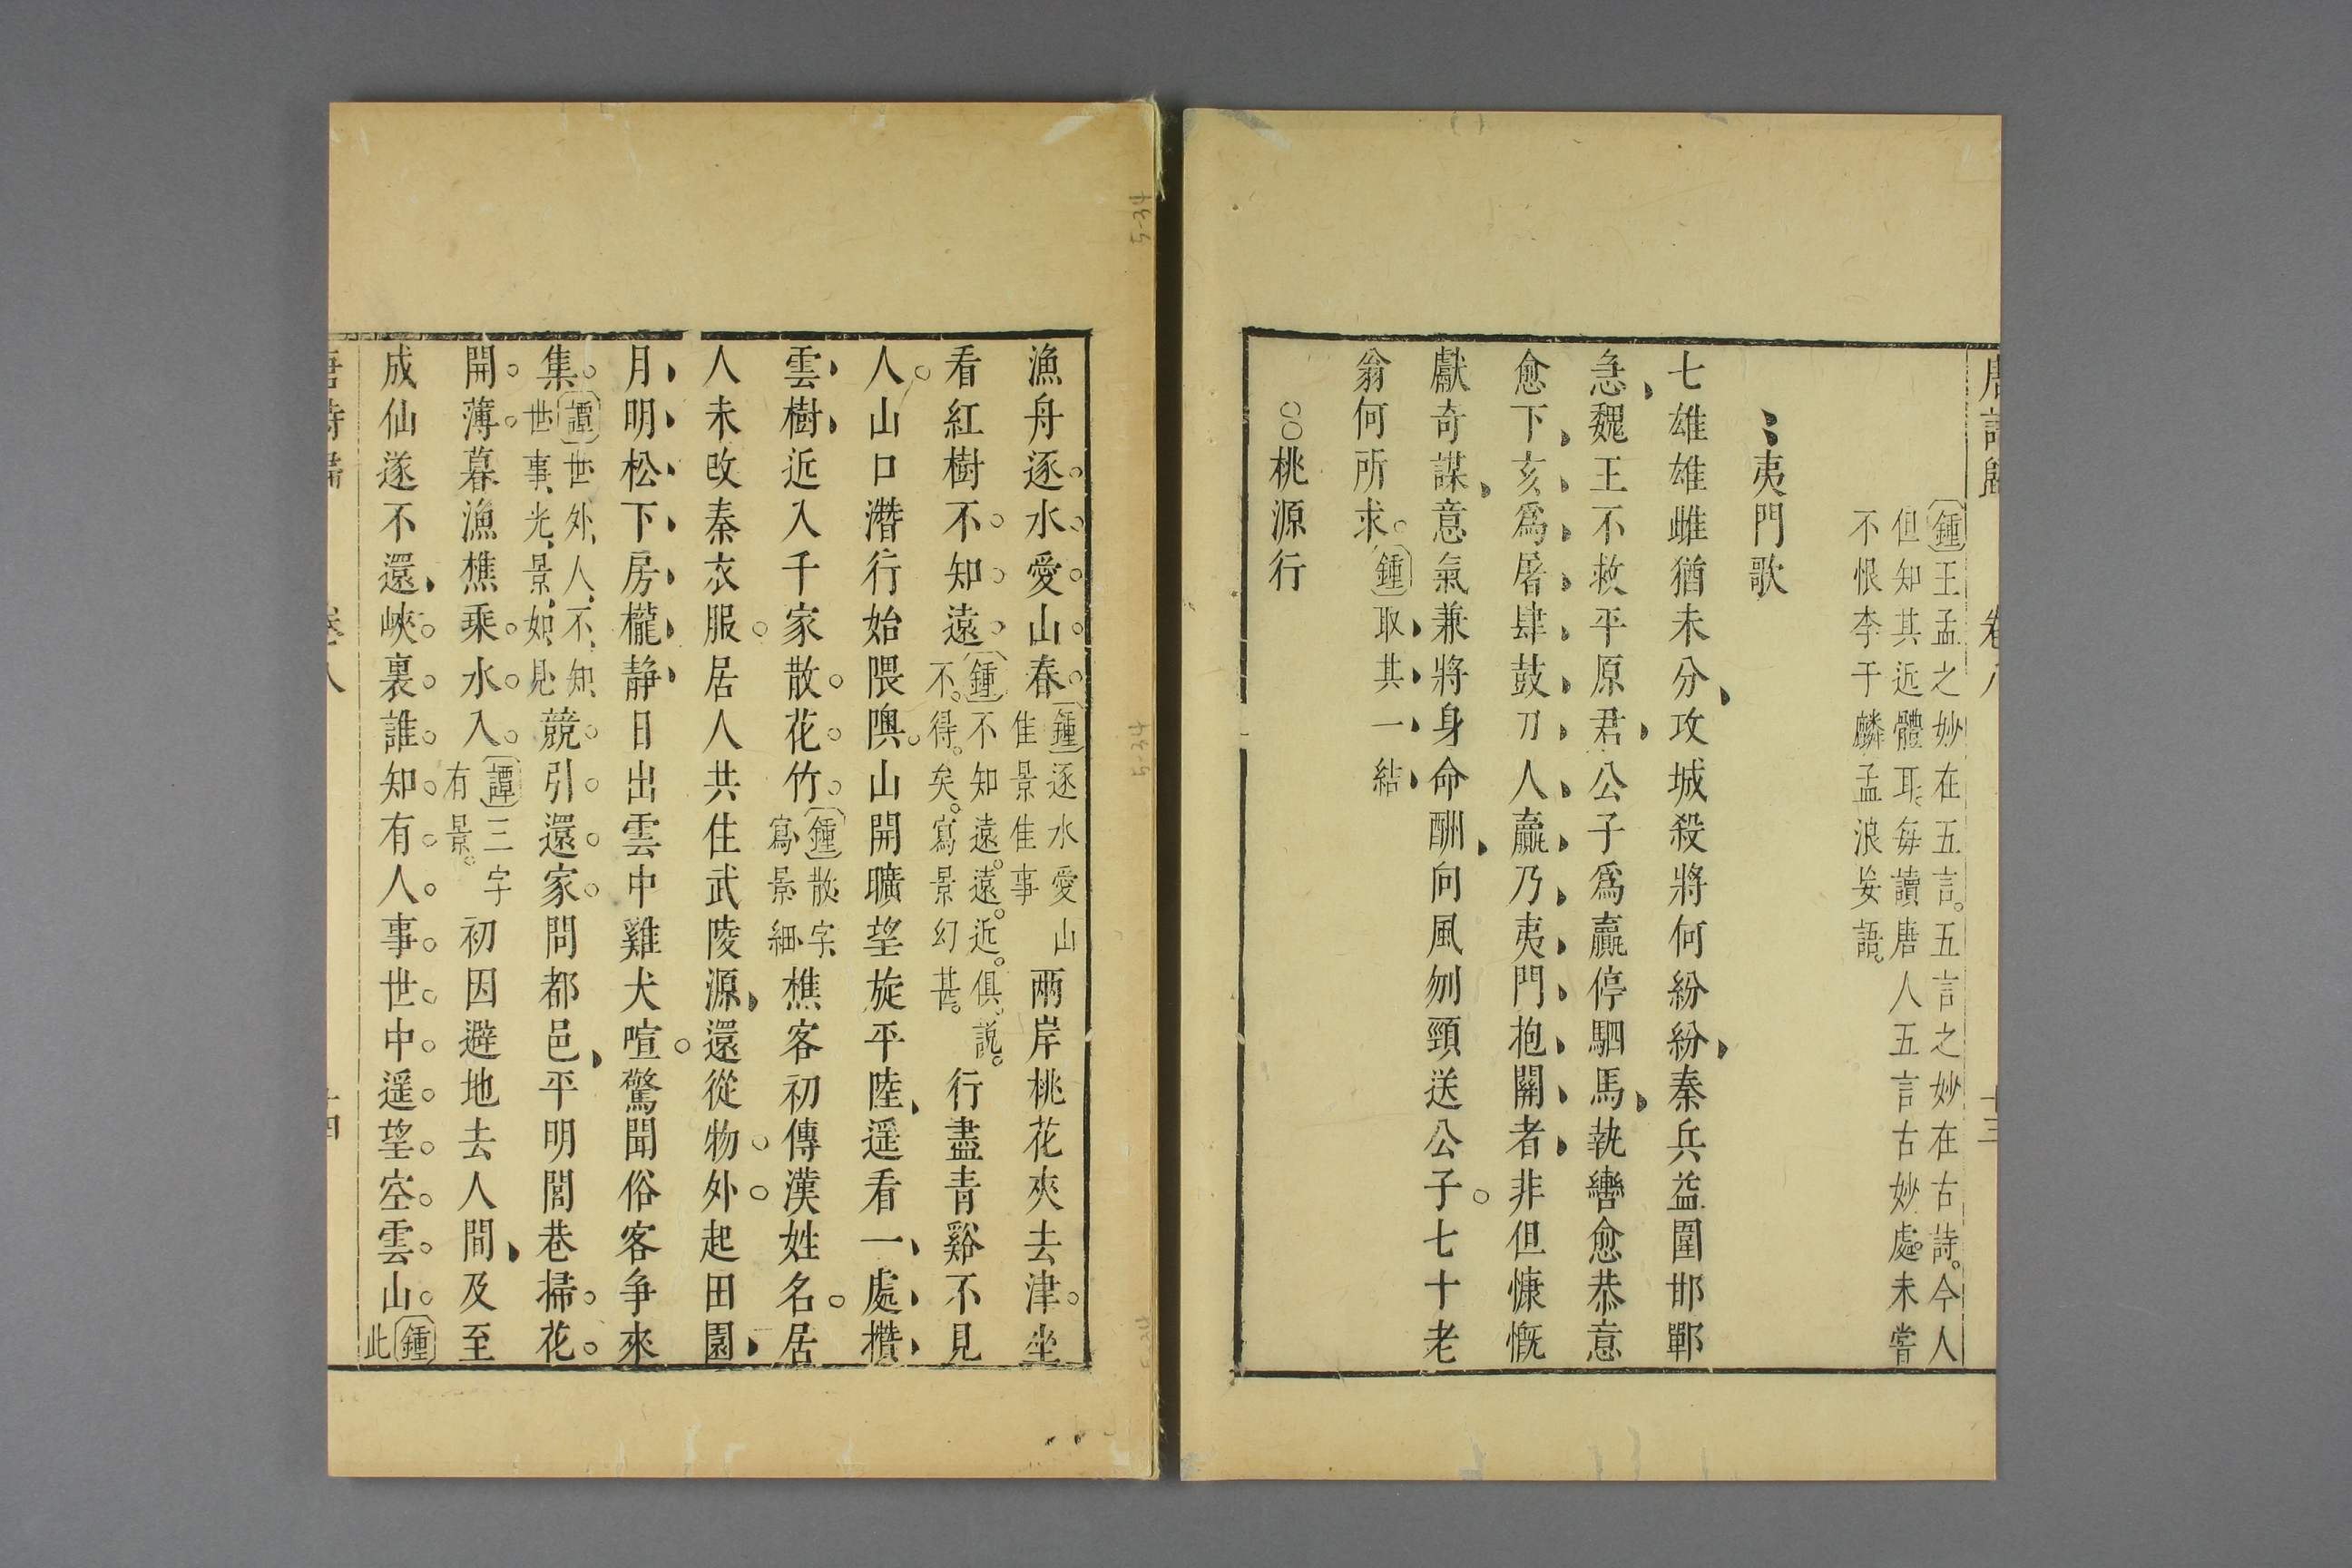 唐詩歸 卷八 十三
鍾王孟之妙在五言。五言之妙在古詩。今人
但知其近體耳。每讀唐人五言古妙處。未嘗
不恨李于麟孟浪妄語。
夷門歌
七雄雄雌猶未分攻城殺將何紛紛秦兵益圍邯鄲
急魏王不救平原君公子爲嬴停駟馬執轡愈恭意
愈下亥爲屠肆鼓刀人嬴乃夷門抱關者非但慷慨
獻奇謀意氣兼將身命酬向風刎頸送公子七十老
翁何所求鍾取其一結
桃源行
漁舟逐水愛山春鍾逐水愛山佳景佳事兩岸桃花夾去津坐
看紅樹不知遠鍾不知遠。遠。近。俱說。不。得。矣。寫景幻甚。行盡青谿不見
人山口潛行始隈隩山開曠望旋平陸遥看一處攢
雲樹近入千家散花竹鍾散字寫景細樵客初傳漢姓名居
人未改秦衣服居人共住武陵源還從物外起田園
月明松下房櫳静日出雲中雞犬喧驚聞俗客争來
集譚世外人不知世事光景如見競引還家問都邑平明閭巷掃花
開薄暮漁樵乘水入譚三字有景。初因避地去人間及至
成仙遂不還峽裏誰知有人事世中遥望空雲山鍾此
唐詩歸 卷八 十四